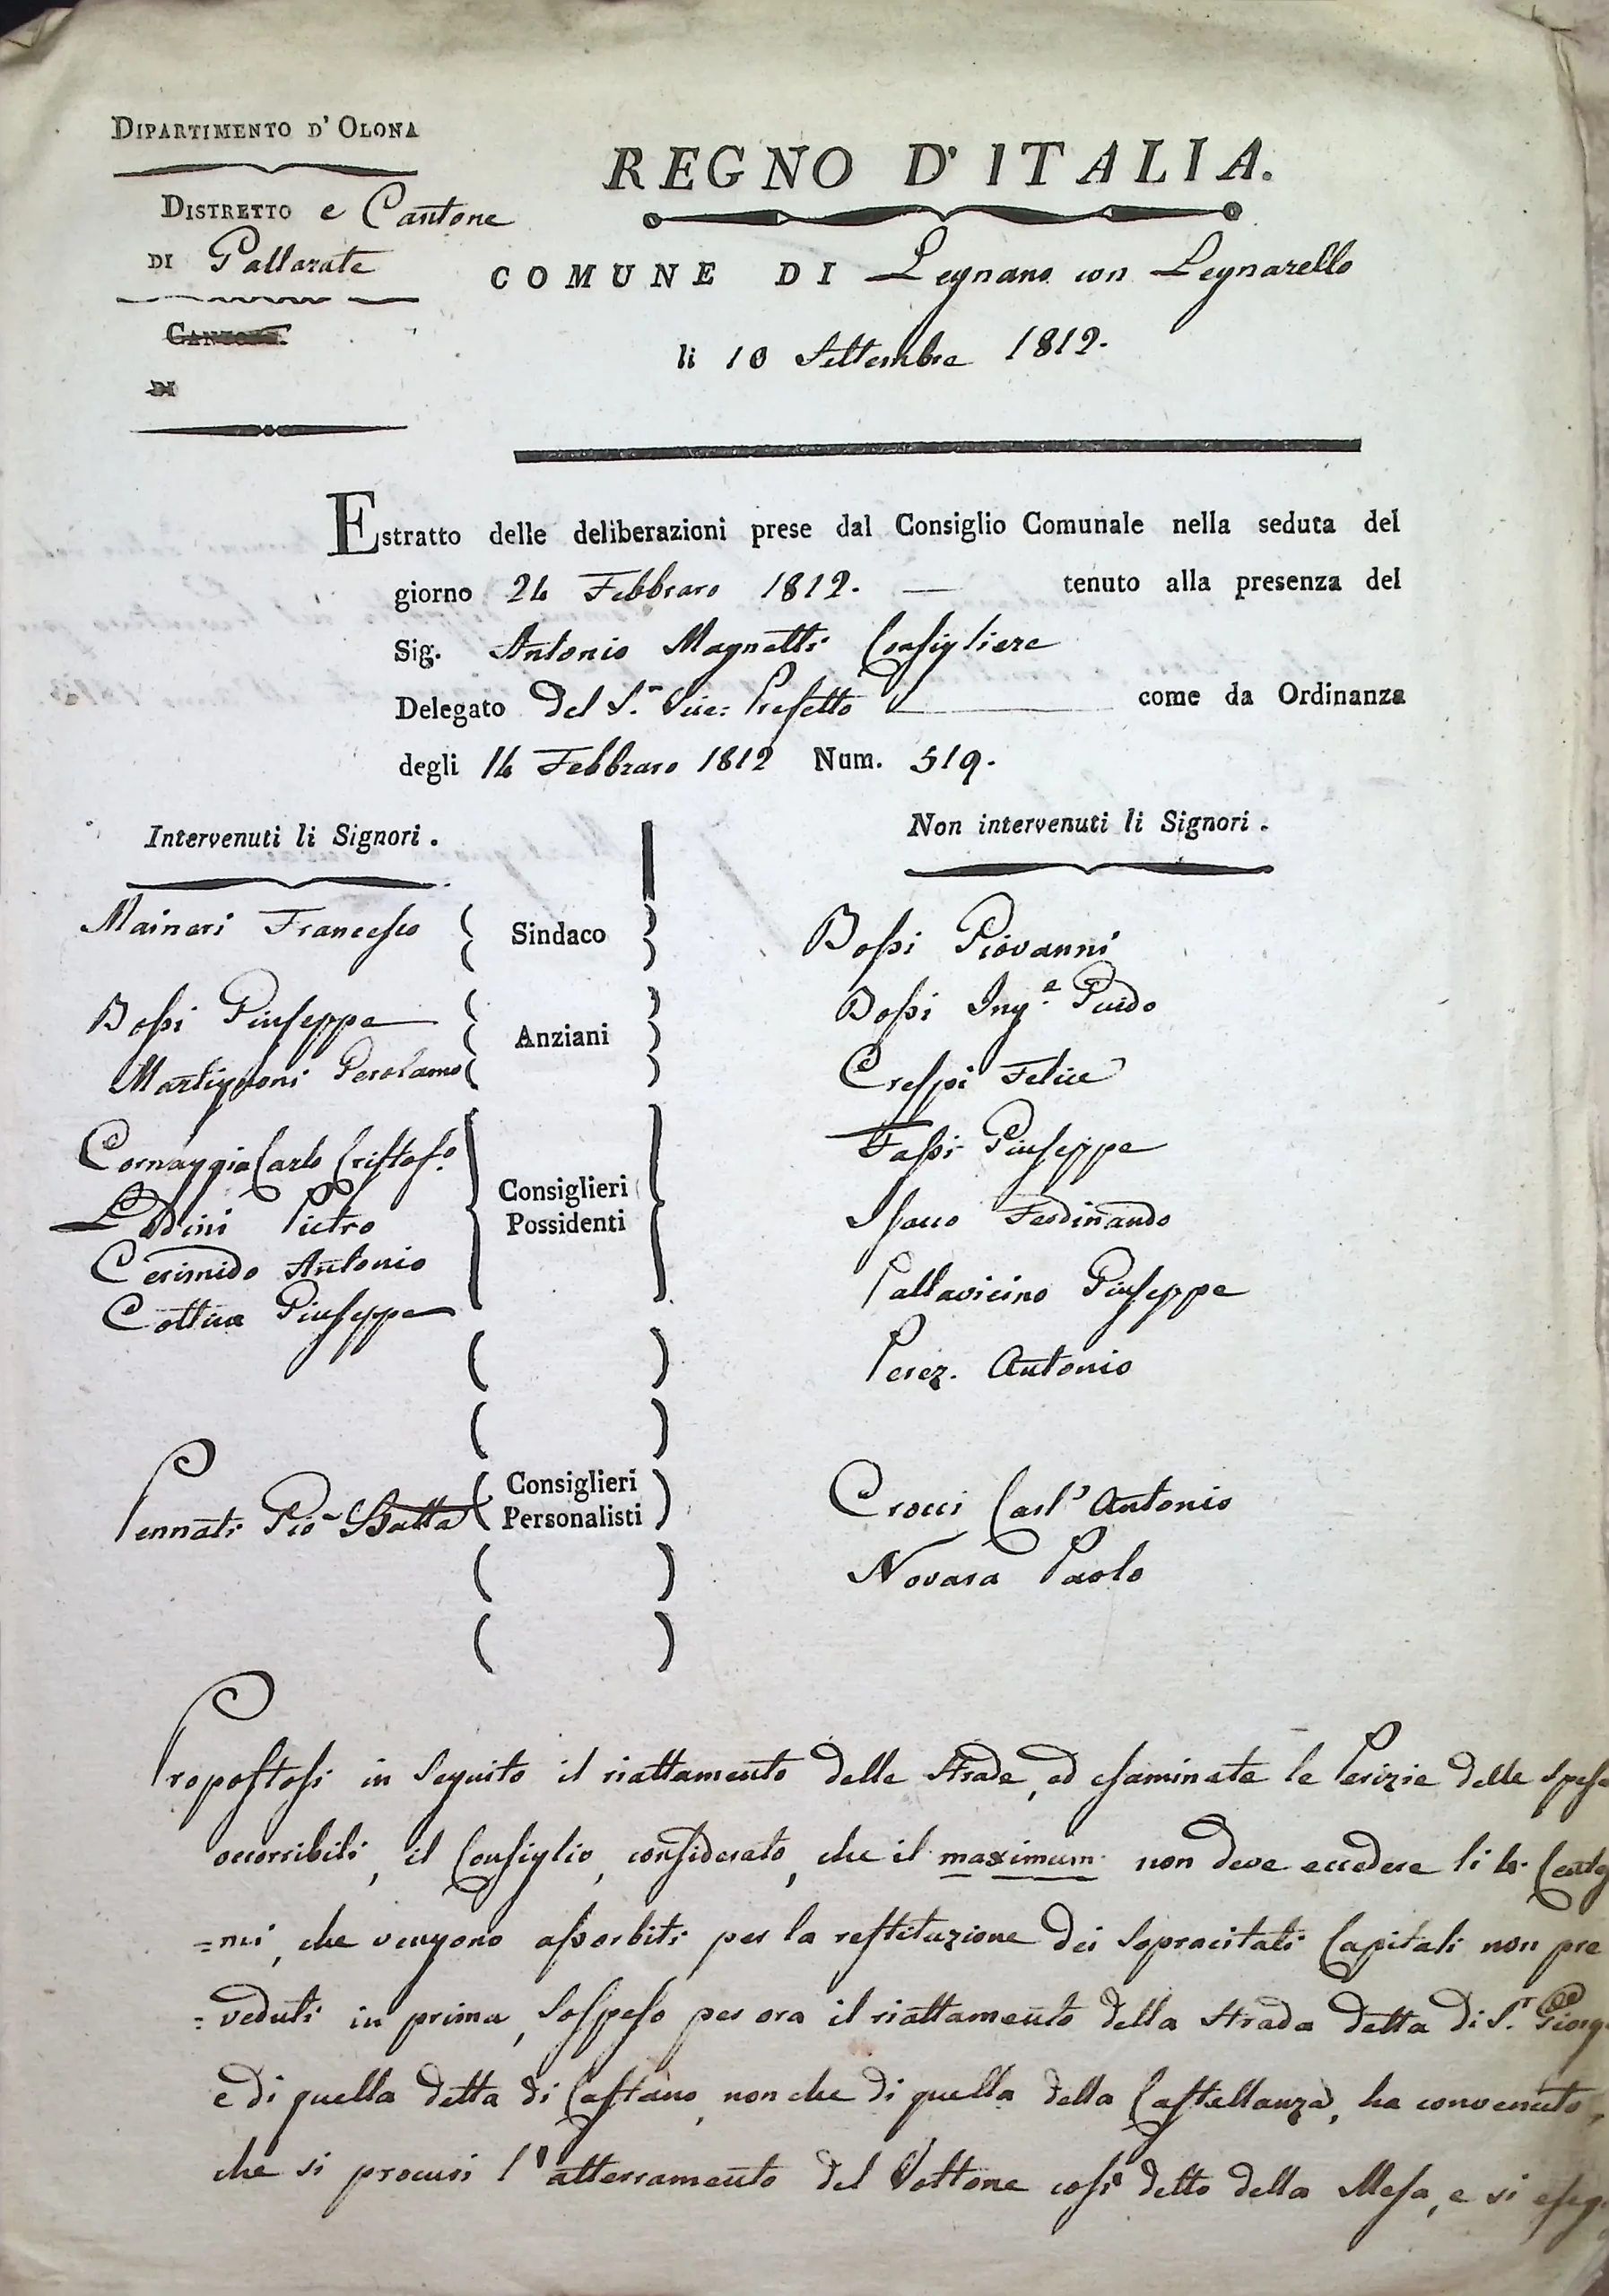 DIPARTIMENTO D' OLONA
DISTRETTO e Cantone
DI Gallarate
CANTONE
DI
REGNO D'ITALIA.
COMUNE DI Legnano con Legnarello
li 10 Settembre 1812.
Estratto delle deliberazioni prese dal Consiglio Comunale nella seduta del
giorno 24 Febbraro 1812. — tenuto alla presenza del
Sig. Antonio Magnetti Consigliere
Delegato del S.r Vice: Prefetto come da Ordinanza
degli 14 Febbraro 1812 Num. 519.
Intervenuti li Signori.
Non intervenuti li Signori.
Maineri Francesco
Sindaco
Bossi Giovanni
Bossi Giuseppe
Anziani
Bossi Ing.e Guido
Martignoni Gerolamo
Crespi Felice
Cornaggia Carlo Cristof.o
Fassi Giuseppe
Lodini Pietro
Consiglieri
Possidenti
Isacco Ferdinando
Cerimido Antonio
Pallavicino Giuseppe
Cottica Giuseppe
Perez. Antonio
Pennati Gio Batta
Consiglieri
Personalisti
Crocci Carl' Antonio
Novara Paolo
Propostosi in seguito il riattamento delle strade, ed esaminate le Perizie delle spese
occorribili, il Consiglio, considerato, che il maximum non deve eccedere li 4. Cente
=mi, che vengono assorbiti per la restituzione dei sopracitati Capitali non pre
=veduti in prima, sospeso per ora il riattamento della strada detta di S.r Giorg
e di quella detta di Castano, non che di quella della Castellanza, ha convenuto,
che si procuri l'atterramento del Vottone così detto della Mesa, e si eseg